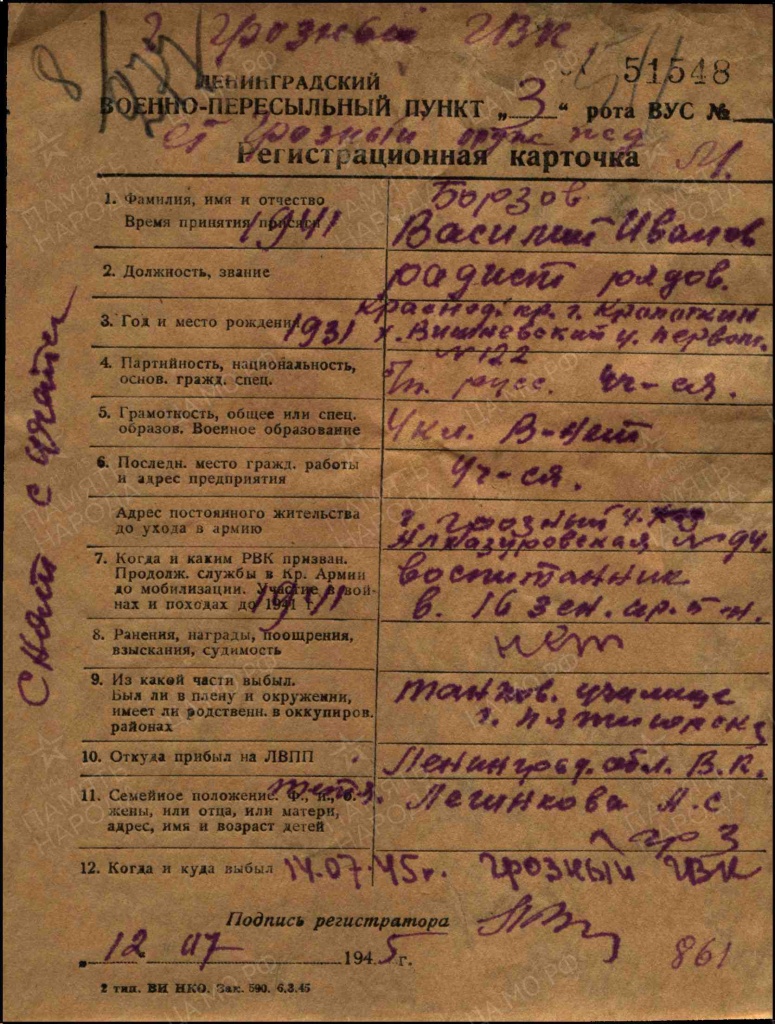 г. Грозный ГВК
51548
ЛЕНИНГРАДСКИЙ
ВОЕННО-ПЕРЕСЫЛЬНЫЙ ПУНКТ „3“ рота ВУС №
Грозный
Регистрационная карточка
1. Фамилия, имя и отчество
Время принятия присяги 1941
Борзов
Василий Иванов
2. Должность, звание
радист рядов.
3. Год и место рождения 1931
Краснод. кр. г. Кропоткин
х. Вишневский у. Первом.
№ 122
4. Партийность, национальность,
основ. гражд. спец.
б/п. русс. уч-ся.
5. Грамотность, общее или спец.
образов. Военное образование
4 кл. В-нет
6. Последн. место гражд. работы
и адрес предприятия
уч-ся.
Адрес постоянного жительства
до ухода в армию
г. Грозный
№ 94.
7. Когда и каким РВК призван.
Продолж. службы в Кр. Армии
до мобилизации. Участие в вой-
нах и походах до 1941 г. 1941
воспитанник
в. 16 зен. ар. п-н.
8. Ранения, награды, поощрения,
взыскания, судимость
нет
9. Из какой части выбыл.
Был ли в плену и окружении,
имеет ли родственн. в оккупиров.
районах
танков. училище
г. Пятигорск
10. Откуда прибыл на ЛВПП
Ленинград. обл. В.К.
11. Семейное положение. Ф., и., о.
жены, или отца, или матери,
адрес, имя и возраст детей
тетя.
Легинкова А. С
12. Когда и куда выбыл 14.07.45г. Грозный ГВК
Подпись регистратора
12 07 1945 г.
861
2 тип. ВИ НКО. Зак. 590. 6.3.45
Снят с учета
ПАМЯТЬ НАРОДА
ЦАМО.РФ